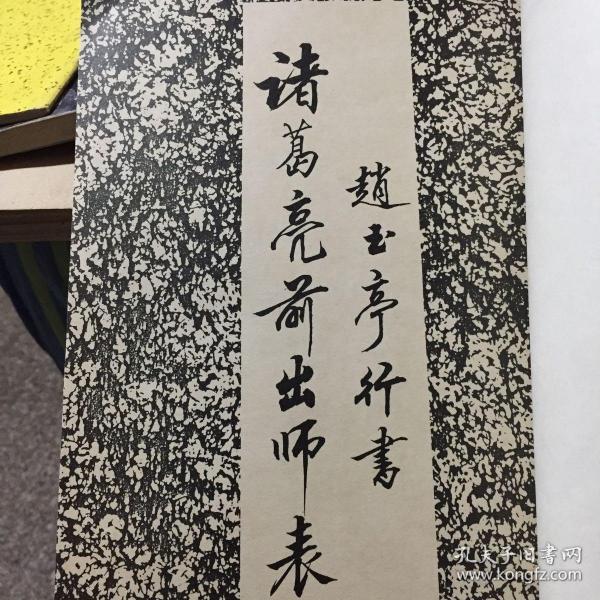 趙玉亭行書
诸葛亮前出师表
孔夫子旧书网
www.kongfz.com